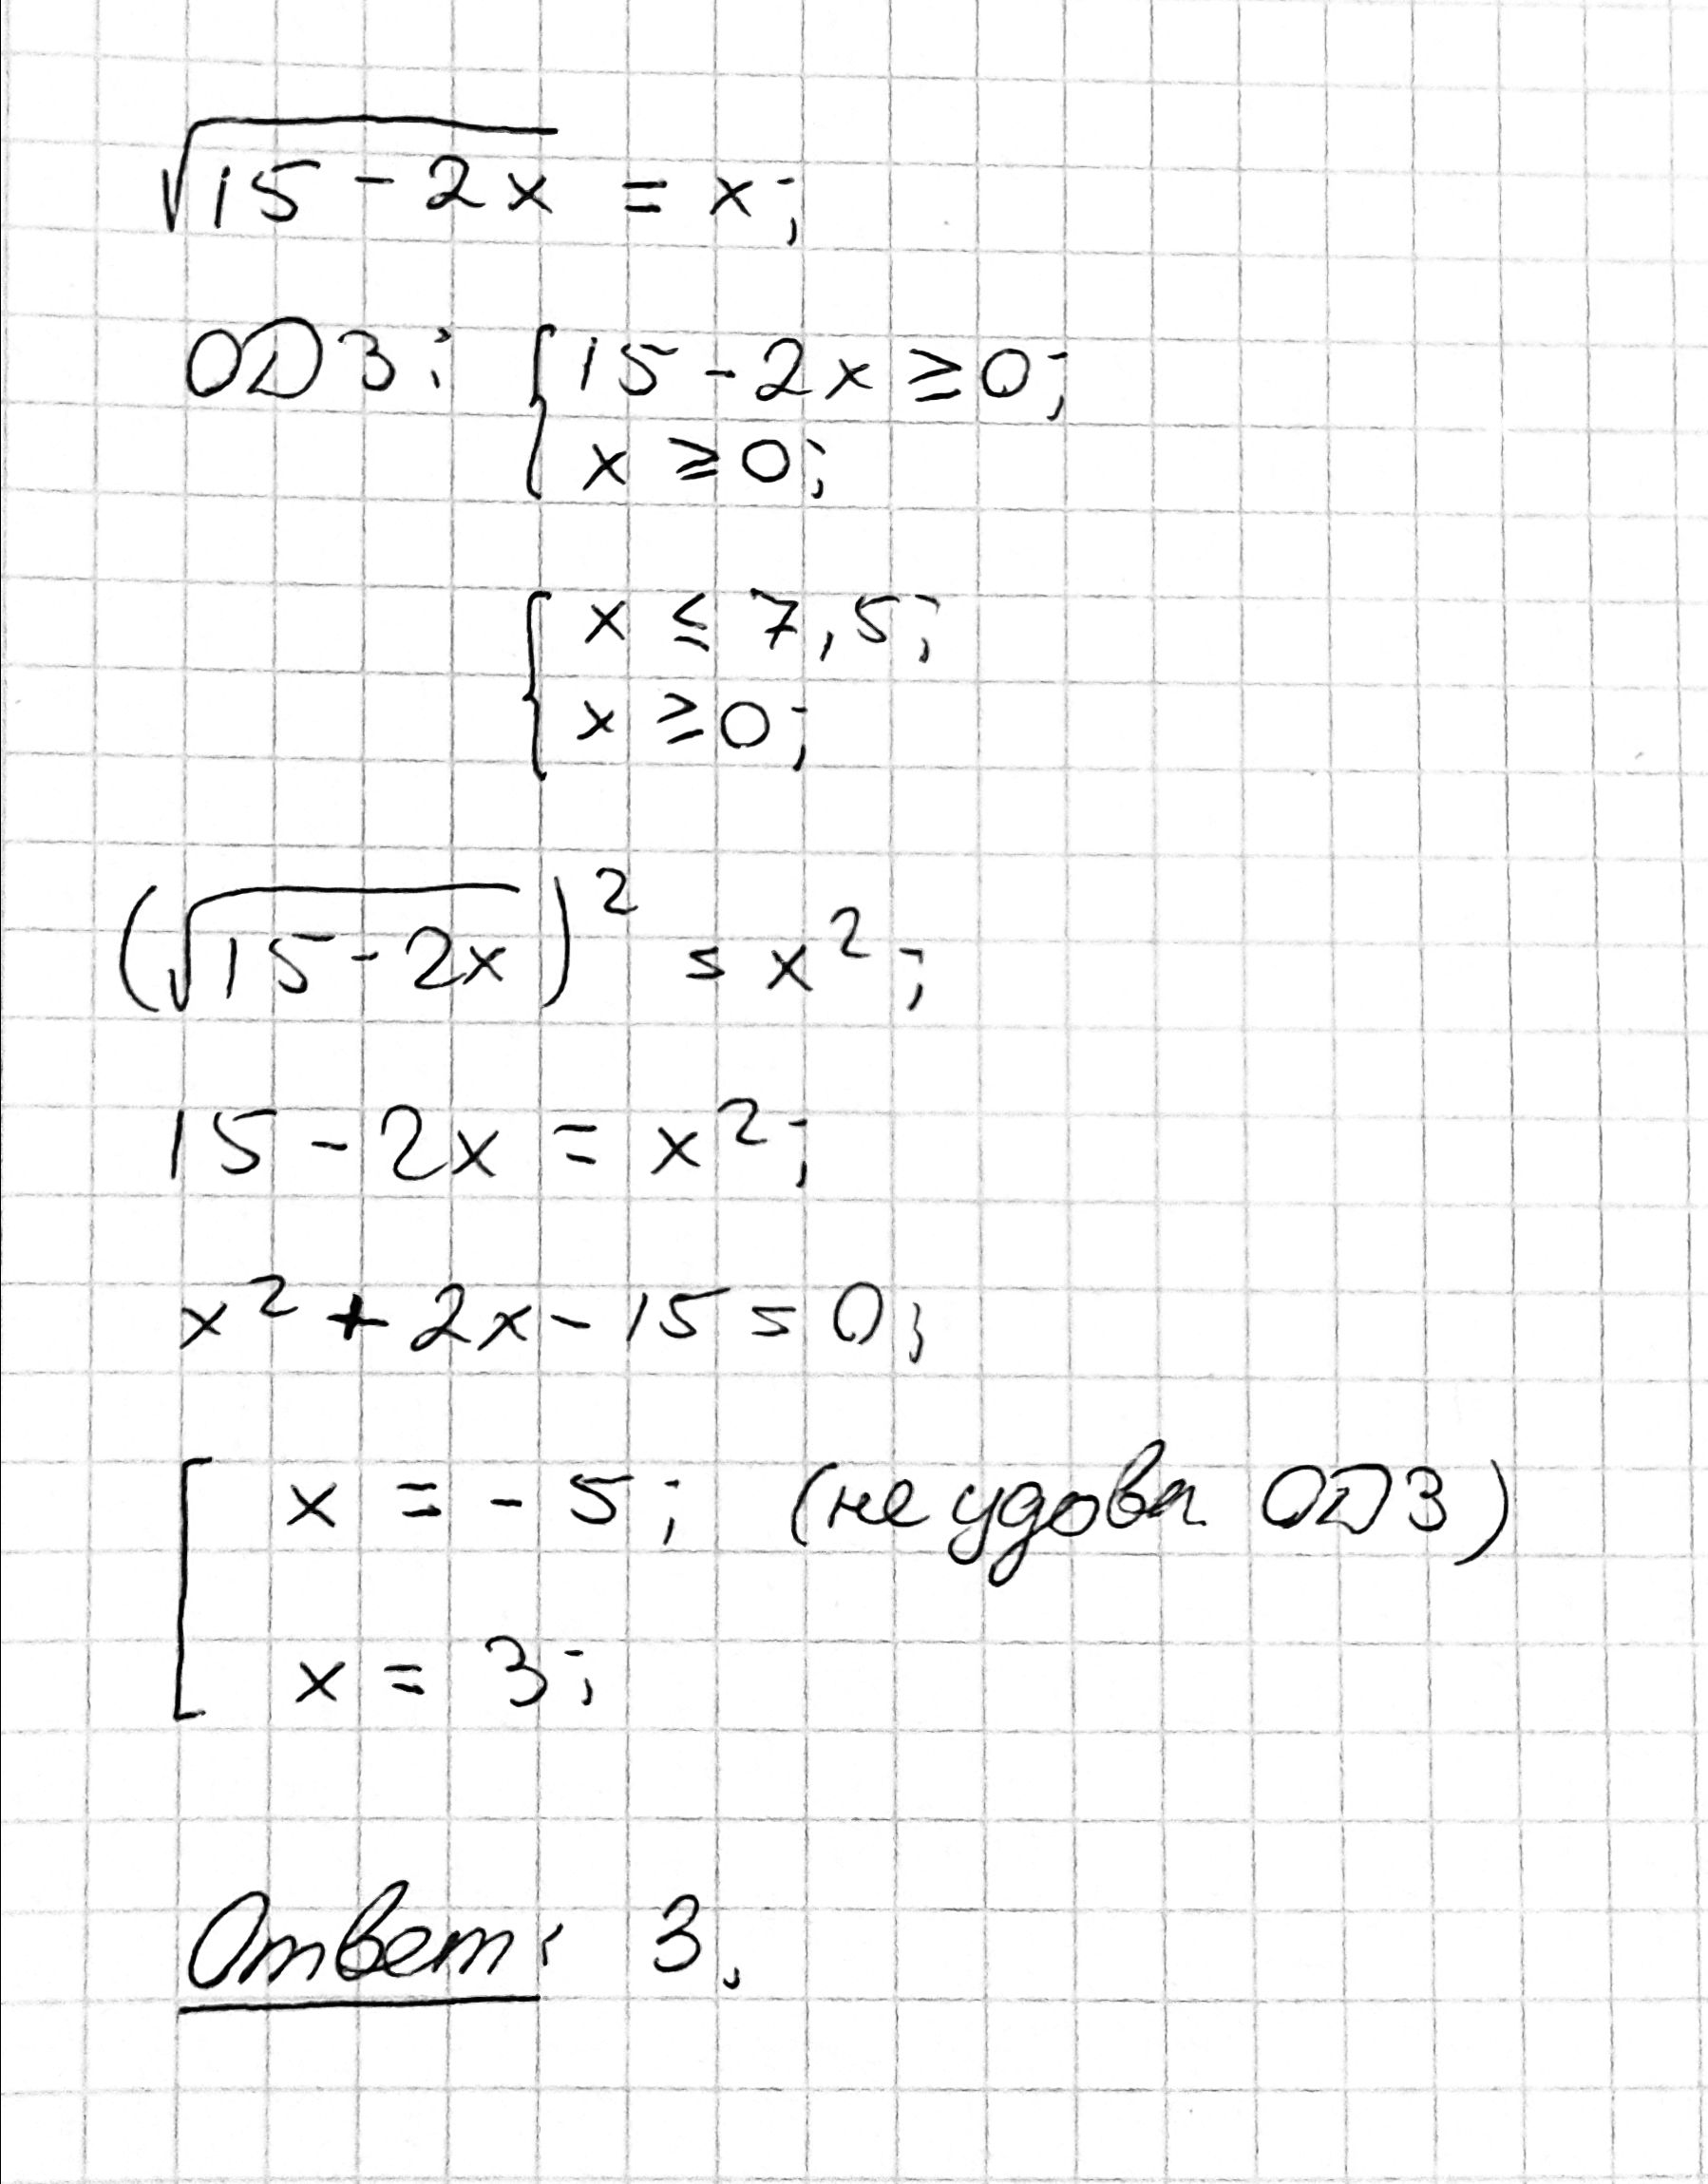 √(15 - 2x) = x;
ОДЗ: { 15 - 2x ≥ 0;
x ≥ 0;
{ x ≤ 7,5;
x ≥ 0;
(√(15 - 2x))² = x²;
15 - 2x = x²;
x² + 2x - 15 = 0;
[ x = - 5; (не удовл ОДЗ)
x = 3;
Ответ: 3.